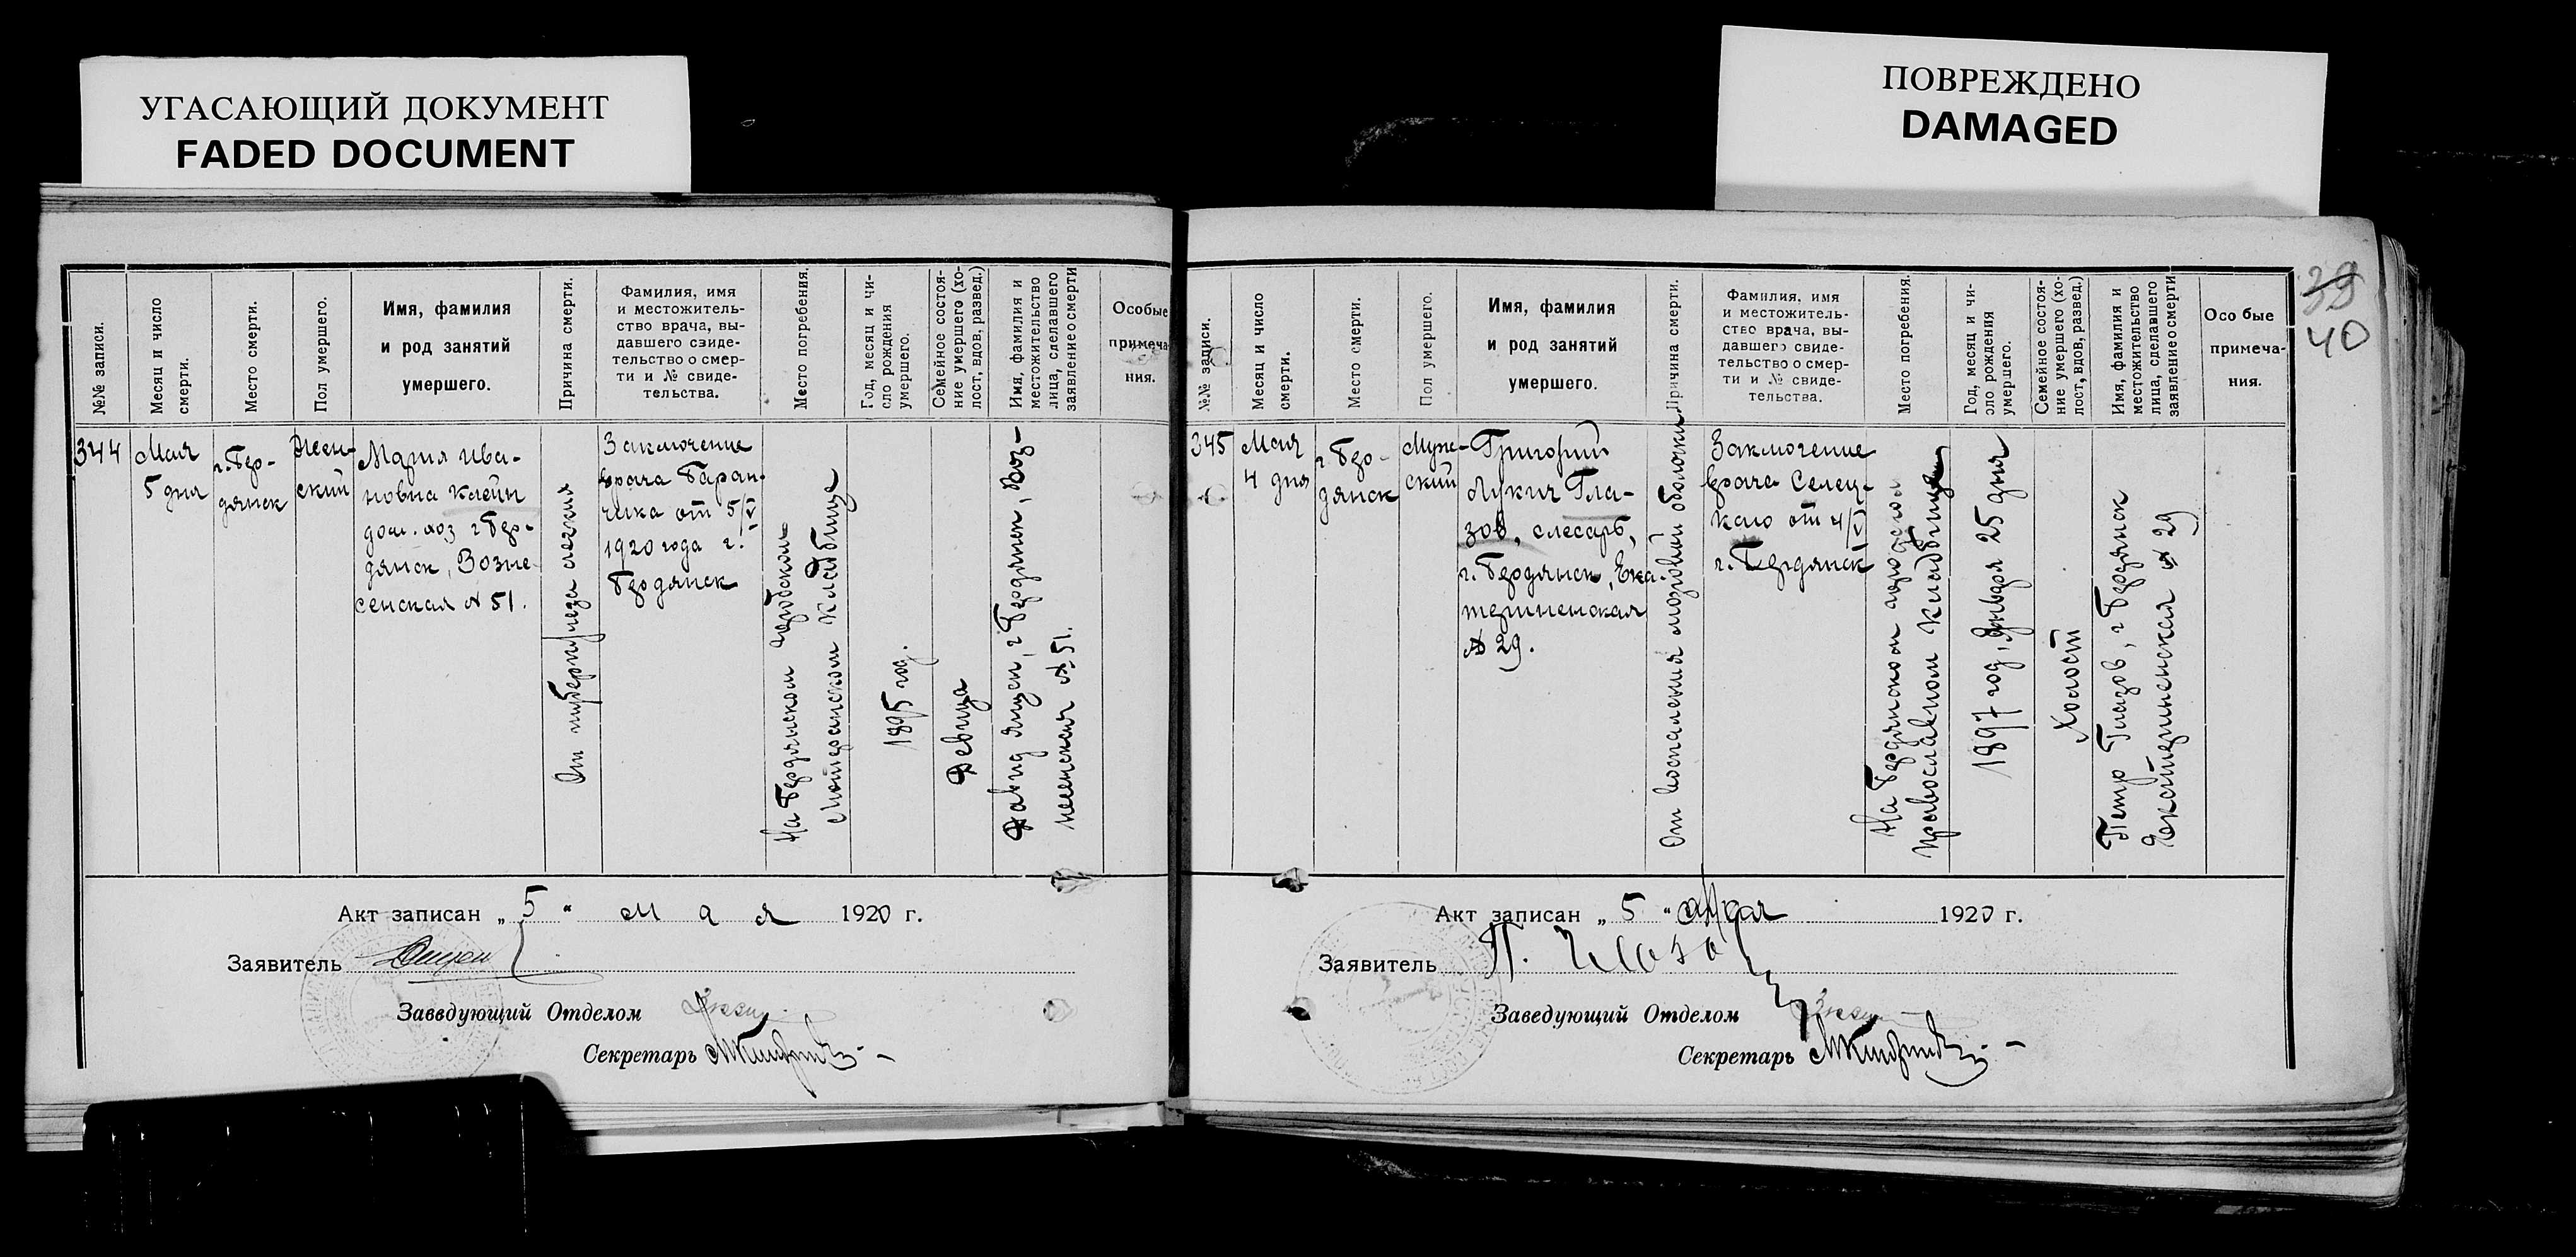 УГАСАЮЩИЙ ДОКУМЕНТ
FADED DOCUMENT
ПОВРЕЖДЕНО
DAMAGED
№№ записи.
Месяц и число
смерти.
Место смерти.
Пол умершего.
Имя, фамилия
и род занятий
умершего.
Причина смерти.
Фамилия, имя
и местожитель-
ство врача, вы-
давшего свиде-
тельство о смер-
ти и № свиде-
тельства.
Место погребения.
Год, месяц и чи-
сло рождения
умершего.
Семейное состоя-
ние умершего (хо-
лост, вдов, развед.)
Имя, фамилия и
местожительство
лица, сделавшего
заявление о смерти
Особые
примеча-
ния.
344
Мая
5 дня
г. Бер-
дянск
Жен-
ский
Мария Ива-
новна Клейн
дом. хоз г Бер-
дянск, Возне-
сенская № 51.
От туберкулеза легких
Заключение
врача Баран-
чика от 5/V
1920 года г.
Бердянск
На Бердянском городском
Лютеранском кладбище
1895 год.
Девица
Давид Янцен, г Бердянск, Воз-
несенская № 51.
Акт записан „ 5 “ мая 1920 г.
Заявитель
Заведующий Отделом
Секретарь
№№ записи.
Месяц и число
смерти.
Место смерти.
Пол умершего.
Имя, фамилия
и род занятий
умершего.
Причина смерти.
Фамилия, имя
и местожитель-
ство врача, вы-
давшего свиде-
тельство о смер-
ти и № свиде-
тельства.
Место погребения.
Год, месяц и чи-
сло рождения
умершего.
Семейное состоя-
ние умершего (хо-
лост, вдов, развед.)
Имя, фамилия и
местожительство
лица, сделавшего
заявление о смерти
Особые
примеча-
ния.
39
40
345
Мая
4 дня
г Бер-
дянск
Муж-
ский
Григорий
Лукич Гла-
зов, слесарь,
г. Бердянск, Ека-
терининская
№ 29.
От воспаления мозговой оболочки
Заключение
врача Селец-
каго от 4/V
г. Бердянск
На Бердянском городском
православном кладбище
1897 год, Января 25 дня
Холост
Петр Глазов, г Бердянск
Екатерининская № 29
Акт записан „ 5 “ мая 1920 г.
Заявитель П. Глазов
Заведующий Отделом
Секретарь